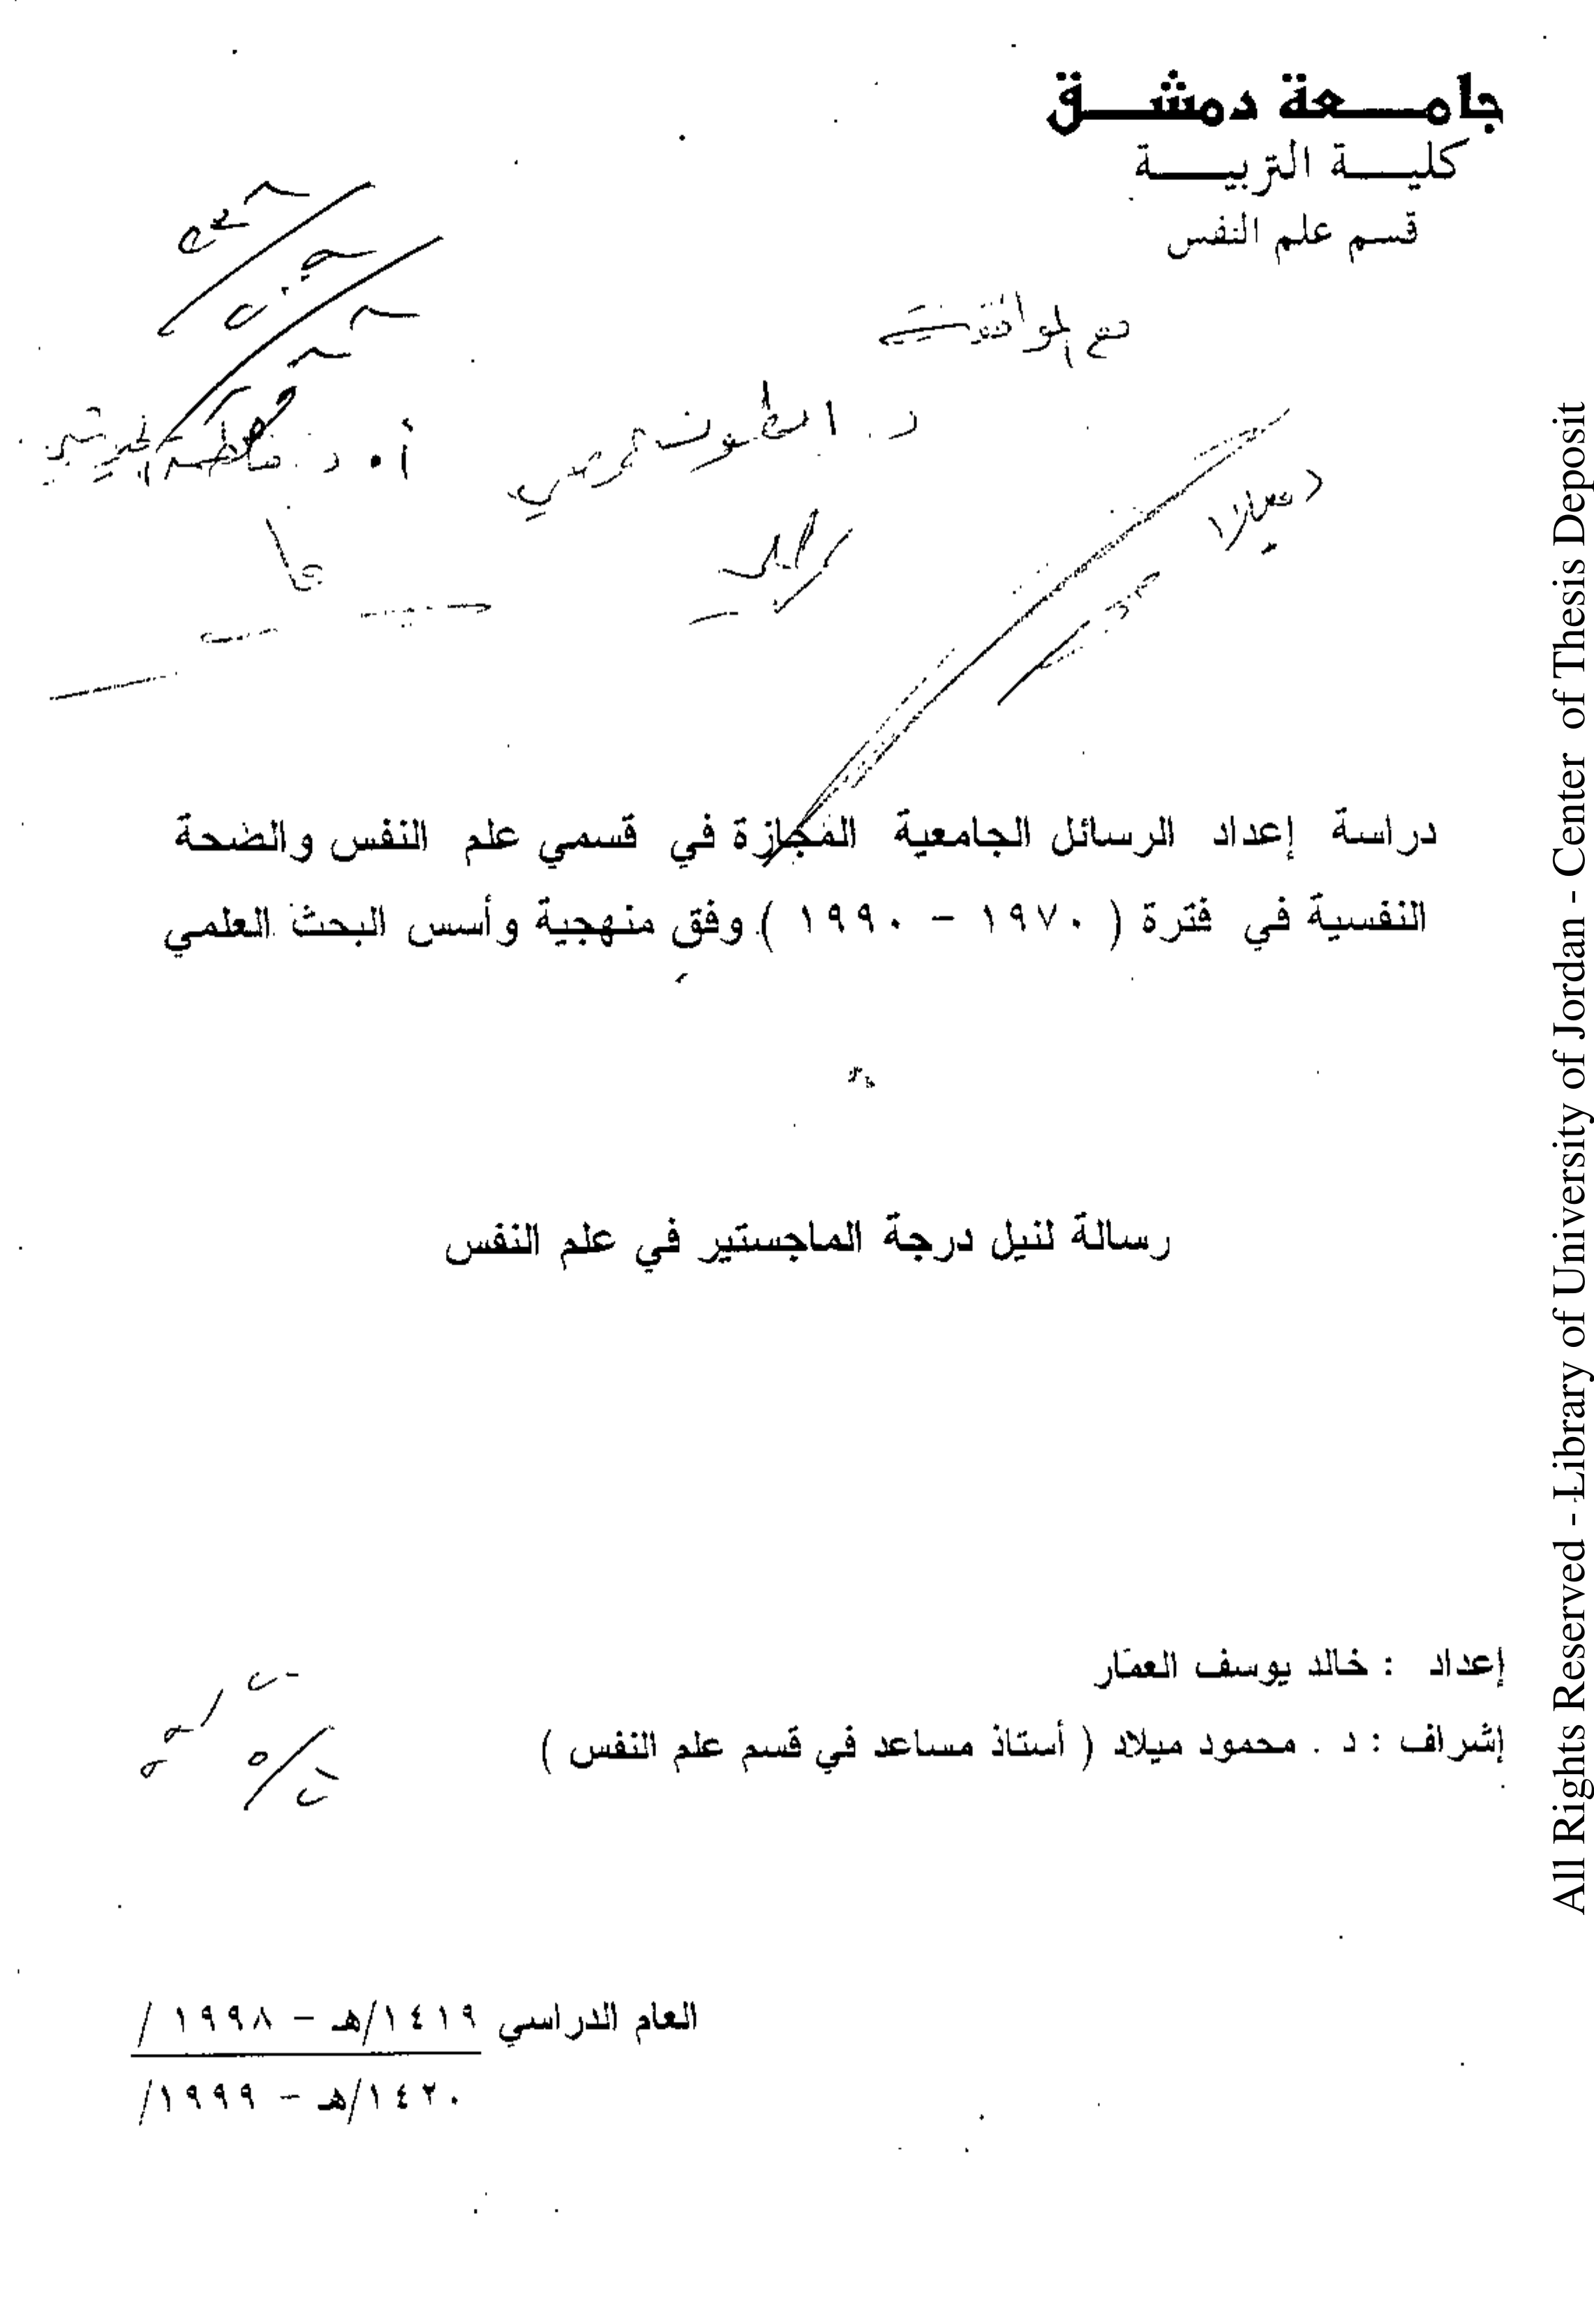 جامعة دمشق
كلية التربية
قسم علم النفس
مع الموافقة
د. انطون حمصي
أ. د. فاطمة الجيوشي
د ميلاد
دراسة إعداد الرسائل الجامعية المجازة في قسمي علم النفس والصحة
النفسية في فترة ( ١٩٧٠ - ١٩٩٠ ) وفق منهجية وأسس البحث العلمي
رسالة لنيل درجة الماجستير في علم النفس
إعداد : خالد يوسف العمّار
إشراف : د . محمود ميلاد ( أستاذ مساعد في قسم علم النفس )
العام الدراسي ١٤١٩/هـ - ١٩٩٨ /
١٤٢٠/هـ - ١٩٩٩/
All Rights Reserved - Library of University of Jordan - Center of Thesis Deposit